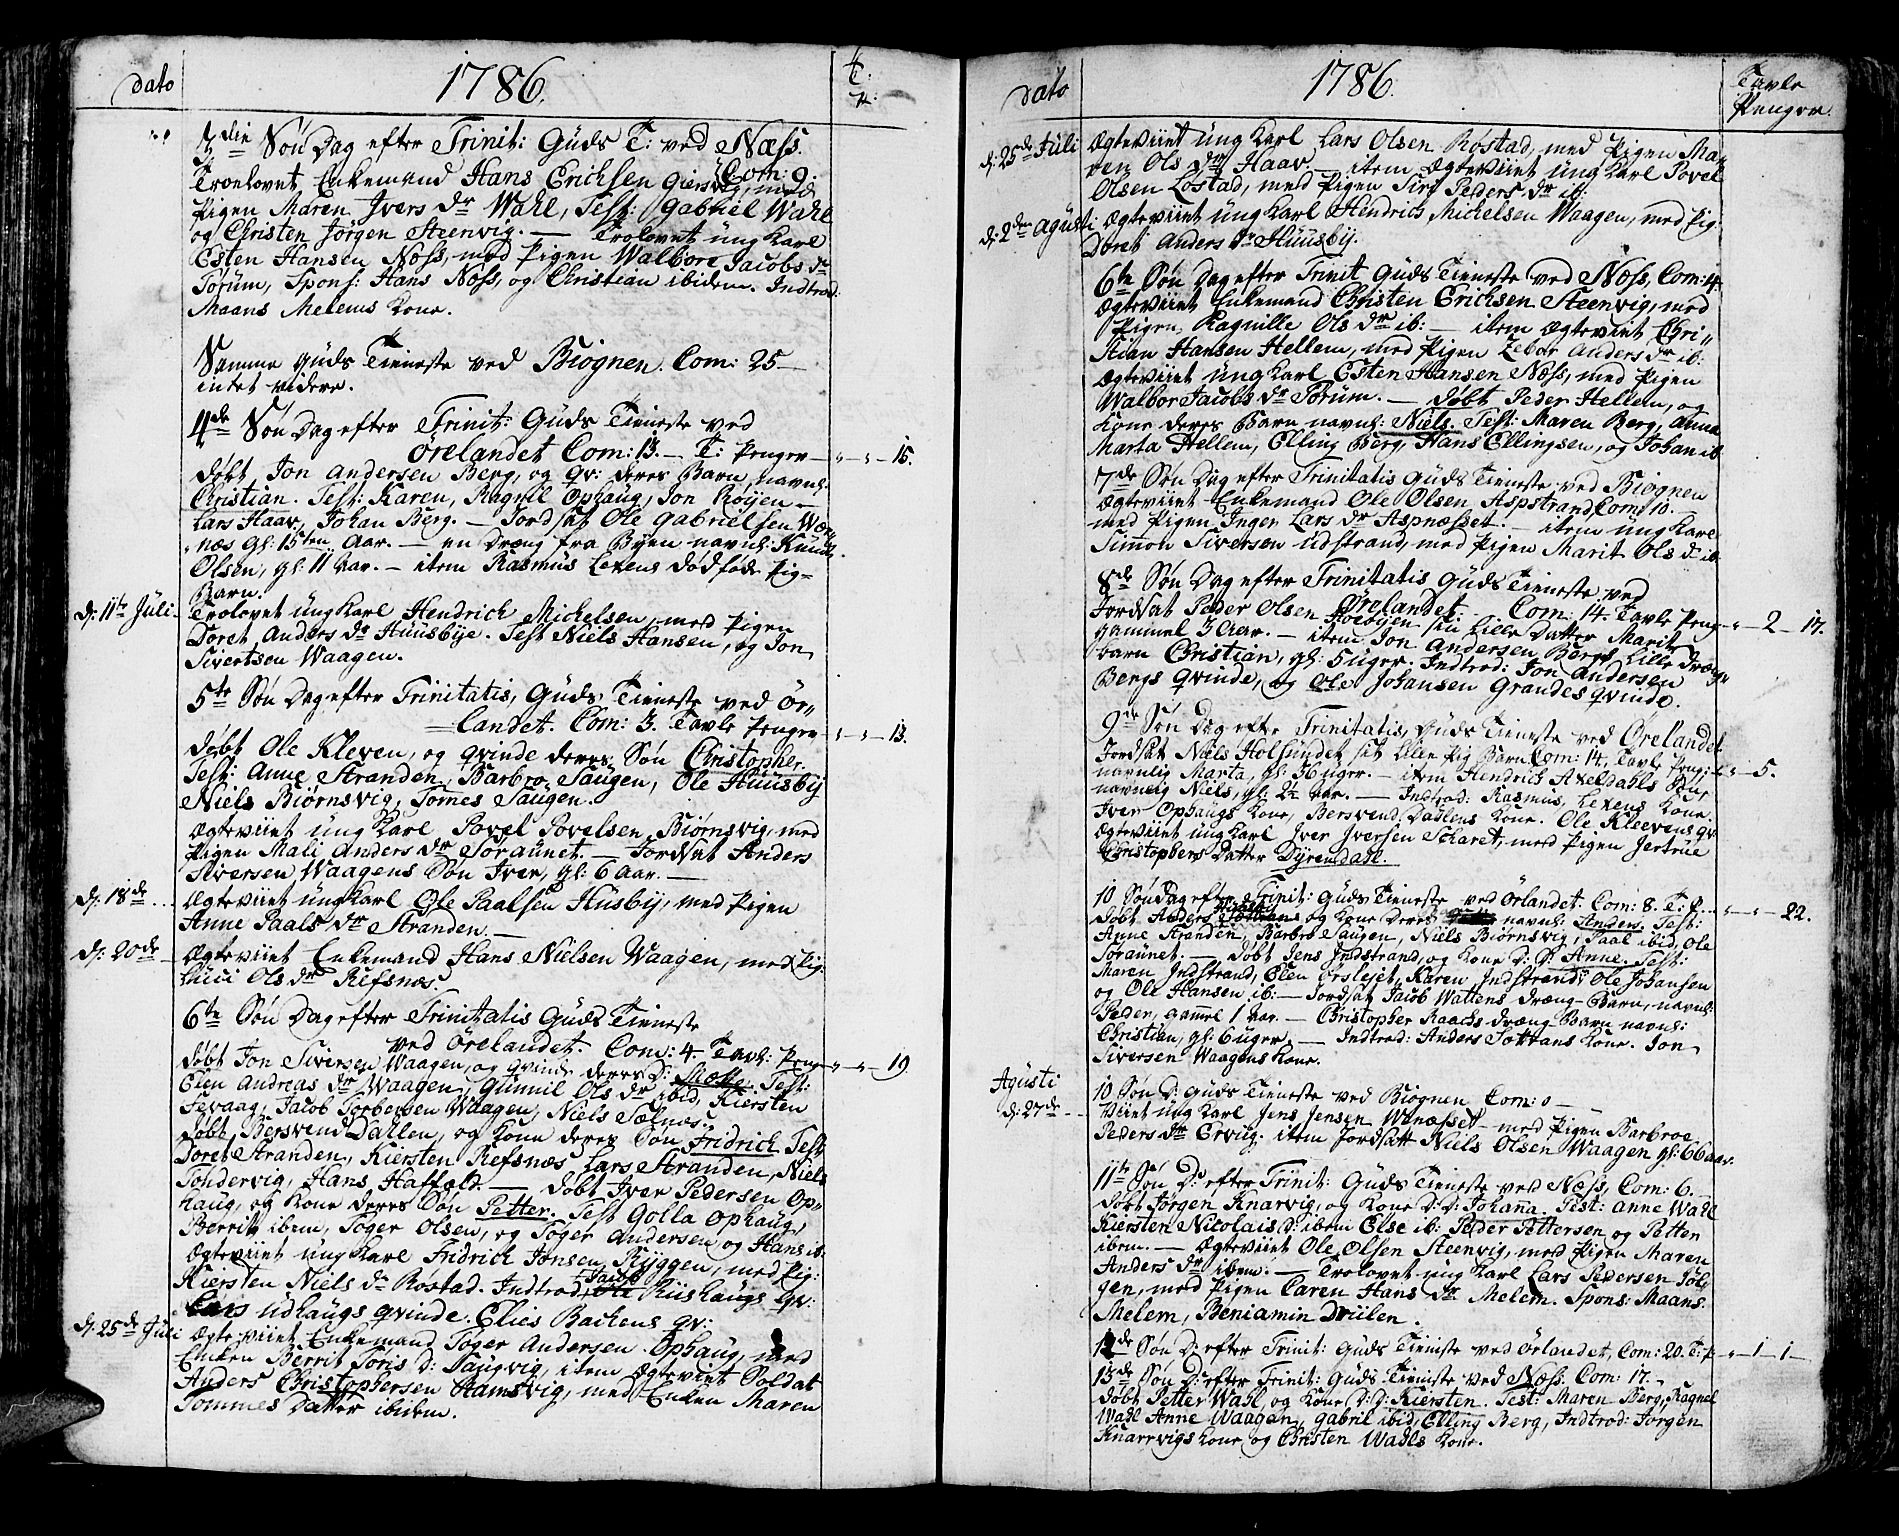 dato 1786. T: P:
3die Søn Dag efter Trinit: Guds T: ved Næss.
Com: 9.
Troelovet Enkemand Hans Erichsen Giersvig, med
Pigen Maren Ivers dr Wahl, Test: Gabriel Wahl
og Christen Jørgen Steenvig. — Trolovet ung Karl
Esten Hansen Næss, med Pigen Walbore Jacobs dr
Torum, Spons: Hans Næss, og Christian ibidem. Indtrod:
Maans Melems Kone.
Samme Guds Tieneste ved Biognen. Com: 25 —
intet videre.
4de Søn Dag efter Trinit: Guds Tieneste ved
Ørelandet Com: 13. — T: Penger — „ — „ — 15.
døbt Jon Andersen Berg, og qv: deres Barn navnl:
Christian. Test: Karen, Ragnil Ophaug, Jon Røyen —
Lars Haav, Johan Berg. — Jordsat Ole Gabrielsen Wæ„
„næs gl: 15ten Aar. — en Dræng fra Byen navnl: Knud
Olsen, gl: 11 Aar. — item Rasmus Lexens dødføde Pig=
Barn.
d: 11te Juli — Trolovet ung Karl Hendrich Michelsen, med Pigen
Doret Anders dr Huusbye. Test Niels Hansen, og Jon
Sivertsen Waagen.
5te Søn Dag efter Trinitatis, Guds Tieneste ved Ør„
=landet. Com: 3. Tavle Penger — „ — „ — 13.
døbt Ole Kleven, og qvinde deres Søn Christopher.
Test: Anne Stranden, Barbro Saugen, Ole Huusby
Niels Biørnsvig, Tornes Saugen.
Ægteviiet ung Karl Povel Povelsen Biørnsvig, med
Pigen Mali Anders dr Soraunet. — Jordsat Anders
Siversen Waagens Søn Iver, gl: 6 Aar. —
d: 18de ... Ægteviiet ung Karl Ole Paalsen Husby, med Pigen
Anne Paals dr Stranden. —
d: 20de — Ægteviiet Enkemand Hans Nielsen Waagen, med Pig:
Luci Ols dr Refsnæs.
6te Søn Dag efter Trinitatis Guds Tieneste
ved Ørelandet. Com: 4. Tavl: Peng „ — „ — 19
døbt Jon Siversen Waagen, og qvinde deres D: Motte. Test:
Elen Andreas dr Waagen, Gunnil Ols dr ibid, Kiersten
Fevaag, Jacob Torbersen Waagen, Niels Sølnæs.
døbt Bersvend Dallen, og Kone deres Søn Fridrich Test
Doret Stranden, Kiersten Refsnæs Lars Stranden, Niels
Tondervig, Hans Haffæld. — døbt Iver Pedersen Op„
haug, og Kone deres Søn Petter. Test Golla Ophaug,
Berrit ibem, Toger Olsen, og Tøger Andersen og Hans ib:
Ægteviiet ung Karl Fridrich Jonsen Ryggen, med Pig:
Kiersten Niels dr Røstad. Indtrod, Jacob Riishaugs qv:
Lars Udhaugs qvinde. Elies Backens qv:
d: 25de Juli Ægteviiet Enkemand Tøger Andersen Ophaug, med
Enken Berrit Joris D: Saugvig, item Ægteviet Soldat
Anders Christophersen Hamsvig, med Enken Maren
Tommes Datter ibidem.
dato 1786. Tavle Penger.
d: 25de Juli Ægteviiet ung Karl Lars Olsen Røstad, med Pigen Ma„
ren Ols dr Haav. — item Ægteviiet ung Karl Povel
Olsen Løstad, med Pigen Siri Peders dr ib:
d: 2den Agusti Ægteviiet ung Karl Hendrich Michelsen Waagen, med Pig
Doret Anders dr Huusby.
6te Søn Dag efter Trinit Guds Tieneste ved Næss, Com: 14
Ægteviiet Enkemand Christen Erichsen Steenvig, med
Pigen, Ragnille Ols dr ib: — item Ægteviet Chri„
stian Hansen Hellem, med Pigen Zebor Anders dr ib:
Ægteviiet ung Karl Esten Hansen Næss, med Pigen
Walbor Jacobs dr Torum. — Døbt Peder Hellem, og
Kone deres Barn navnl: Niels. Test: Maren Berg, Anne
Marta Hellem, Elling Berg, Hans Ellingsen, og Johan ib
7de Søn Dag efter Trinitatis Guds Tieneste ved Biognen
Ægteviiet Enkemand Ole Olsen Aspstrand, Com: 10. —
med Pigen Inger Lars dr Aspnæsset. — item ung Karl
Simon Siversen Udstrand, med Pigen Marit Ols dr ib
8de Søn Dag efter Trinitatis Guds Tieneste ved
Ørelandet Com: 14. Tavle Peng — „ — 2 — 17.
Jordsat Peder Olsen Holøyen sin Lille Datter Marit
gammel 3 Aar. — item Jon Andersen Bergs Lille Dræng„
barn Christian, gl: 5 uger. Indtrod: Jon Andersen
Bergs Qvinde, og Ole Johansen Grandes qvinde.
9de Søn Dag efter Trinitatis, Guds Tieneste ved Ørelandet
Jordsat Niels Holsundet sit Lille Pig Barn Com: 14. Tavl: Peng: „ — 5.
navnlig Marta, gl: 36 uger. — item Hendrich Axeldahls Søn,
navnlig Niels, gl: 2½ Aar. — Indtrod: Rasmus, Lexens Kone.
Iver Ophaugs Kone, Bersvend Dahlens Kone. Ole Kleevens qv
Ægteviiet ung Karl Iver Iversen Scharet, med Pigen Jertrue
Christophers Datter Dyrendahl.
10 Søn Dag efter Trinit: Guds Tieneste ved Ørlandet. Com: 8. T: P — „ — „ — 22.
døbt Anders og Kone deres navnl: Anders. Test:
Anne Stranden, Barbro Saugen, Niels Biørnsvig, Paal ibid, Ole
Soraunet. — døbt Jens Indstrand, og Kone D: D: Anne. Test:
Maren Indstrand, Elen Ørslejet, Karen Indstrand, Ole Johansen
og Ole Hansen ib: — Jordsat Jacob Wattens Dræng-Barn, navnl:
Peder, gamel 1 Aar. — Christopher Raachs Dræng Barn navnl:
Christian, gl: 6 uger. — Indtrod: Anders Tøttans Kone. Jon
Siversen Waagens Kone.
Agusti
d: 27de — 10 Søn D: Guds Tieneste ved Biognen Com: 0 —
Viiet ung Karl Jens Jensen Winæsset — med Pigen Barbroe
Peders dtr Ervig. item Jordsatt Niels Olsen Waagen gl: 66 aar.
11te Søn D: efter Trinit: Guds Tieneste ved Næss, Com: 6. —
døbt Jørgen Knarvig, og Kone D: D: Johana. Test: Anne Wahl
Kiersten Nicolais D: ibem Else ib: Peder Pettersen og Petter
ibem. — Ægteviiet Ole Olsen Steenvig, med Pigen Maren
Anders dr ibem. — Trolovet ung Karl Lars Pedersen Jøl„
gen, med Pigen Caren Hans dr Melem. Spons: Maans
Melem, Beniamin Driilen.
12de Søn D: efter Trinit: Guds Tieneste ved Ørlandet, Com: 20. T: P — „ — 1 — 1 —
13de Søn D: efter Trinit: Guds Tieneste ved Næss. Com: 17. —
døbt Petter Wahl, og Kone D: D: Kiersten. Test: Maren Berg, Ragnel
Wahl Anne Waagen, Gabril ibid, Elling Berg, Indtrod: Jorgen
Knarrvigs Kone og Christen Wahls Kone.